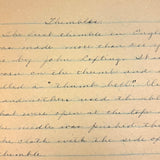 Thimbles.
The first thimble in Engl
was made more than
by John Lofting. It
worn on the thumb and
called a "thumb bell".
used thimble
that were open at the top
needle was pushed th
the cloth with the side
thimble